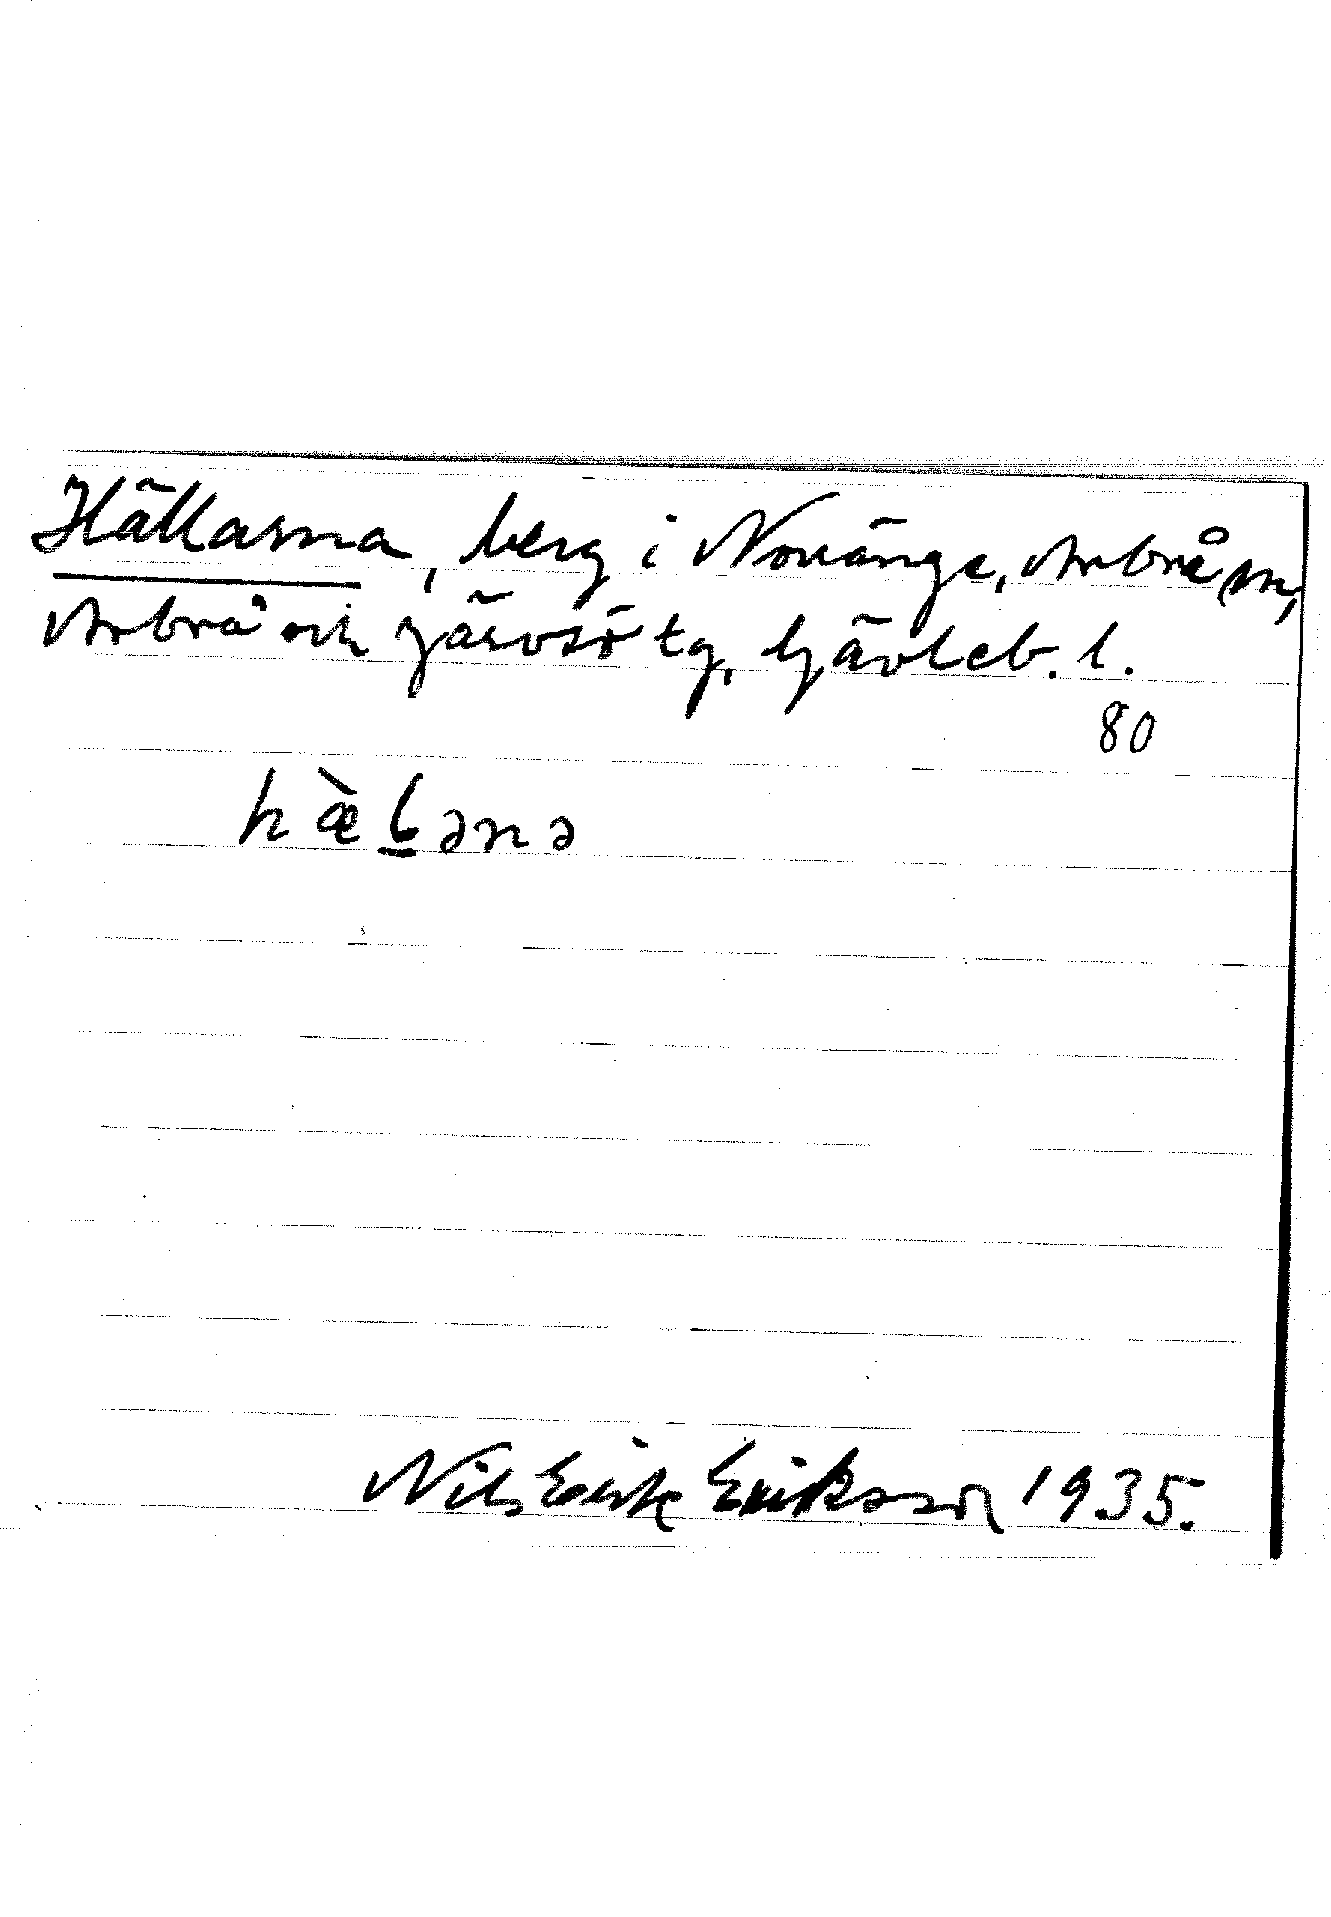 Hällarna, berg i Novänge, Arbrå sn,
Arbrå och Järvsö tg, Gävleb. l.
80
hæ̀lənə
Nils Erik Eriksson 1935.